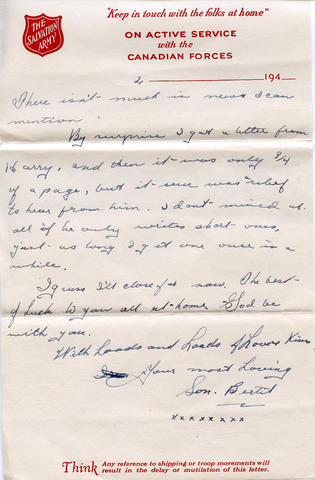 THE
SALVATION
ARMY
"Keep in touch with the folks at home"
ON ACTIVE SERVICE
with the
CANADIAN FORCES
2 194
There isn't much in news I can
mention.
By surprise I got a letter from
Harry, and then it was only 3/4
of a page, but it sure was relief
to hear from him. I don't mind at
all if he only writes short ones,
just as long I get one once in a
while.
I guess I'll close for now. The best
of luck to you all at home. God be
with you.
With Loads and Loads of Loves
Your most Loving
Son. Bertil
xxxxxxxx
Think Any reference to shipping or troop movements will
result in the delay or mutilation of this letter.